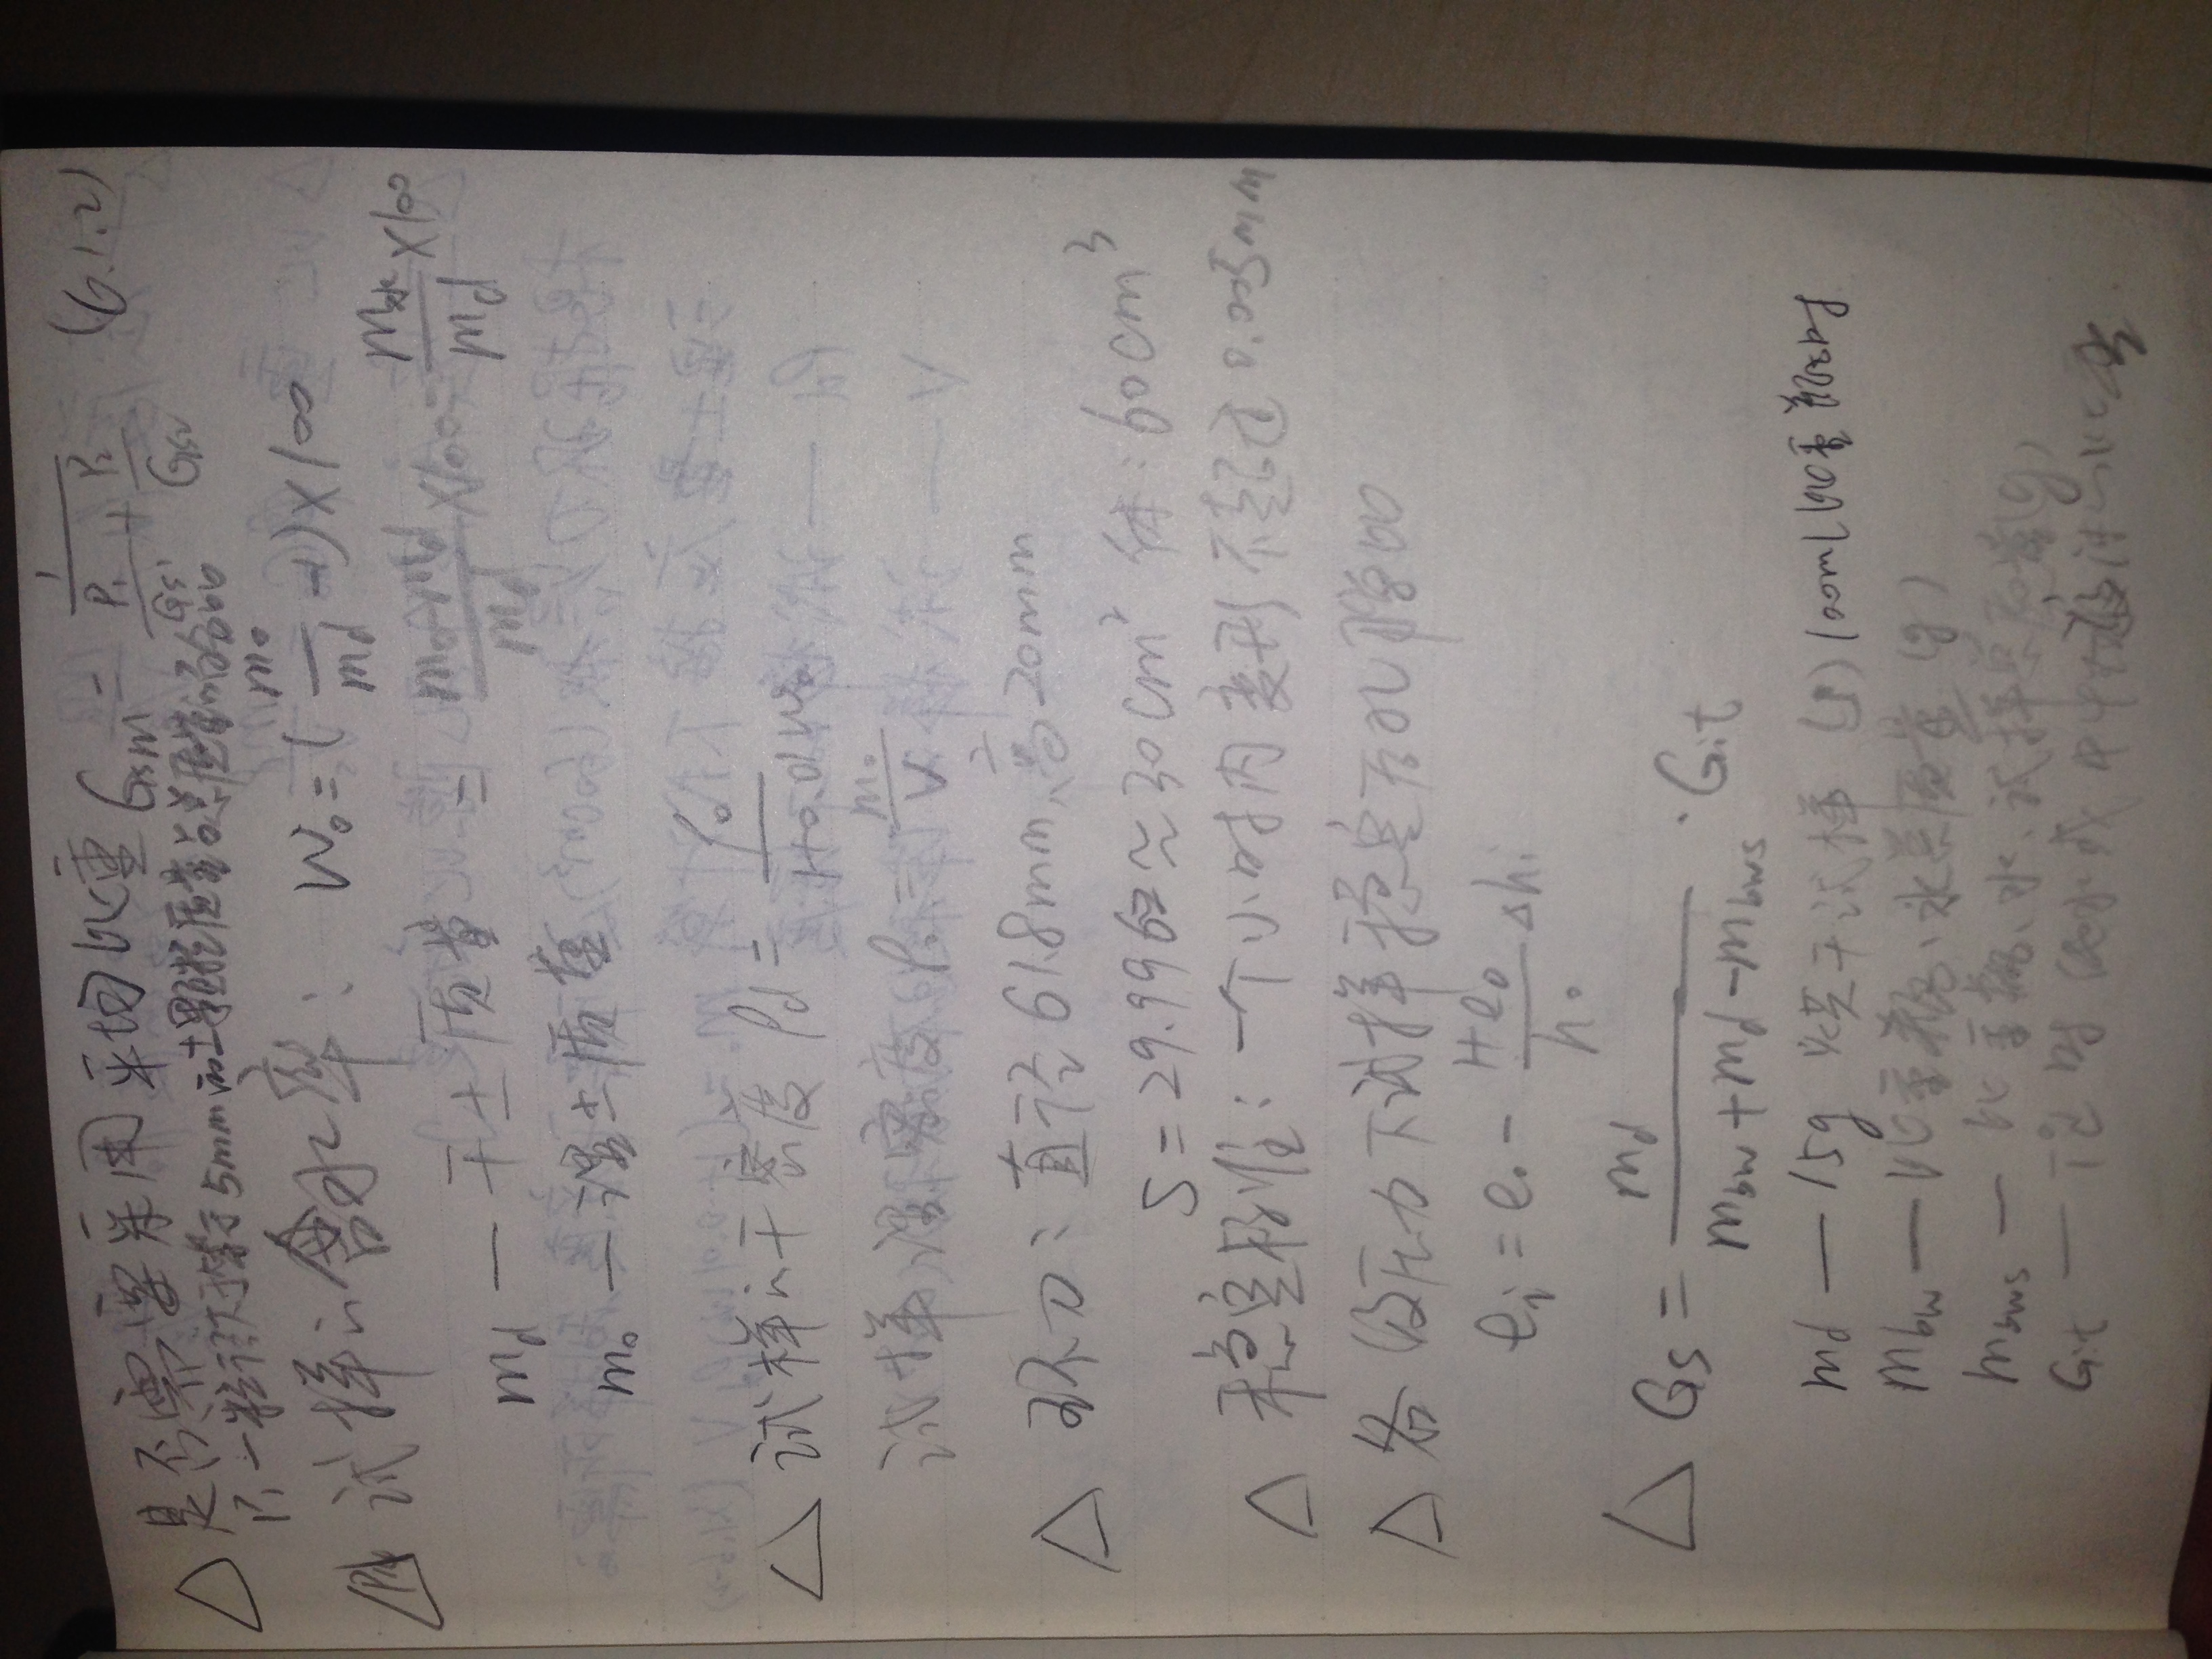 △ 是否需要采用平均比重 Gsm = 1/(P₁/Gs₁ + P₂/Gs₂) (6.1.2)
P₁—粒径大于等于5mm的土颗粒质量占总质量的
△ 试样的含水率: W₀=(m₀/md -1)×100
md — 干土质量 = (m₀-md)/md ×100 = m水/md ×100
m₀ — 湿土质量
△ 试样的干密度 ρd = ρ₀/(1+0.01w₀)
试样湿密度 ρ₀ = m₀/V
△ 环刀: 直径61.8mm, 高20mm
S=29.996 ≈ 30cm² 体:60cm³
△ 稳定标准: 一个小时内变形不超过0.005mm
△ 各级压力下试样稳定后的孔隙比
ei = e₀ - (1+e₀)/h₀ Δhi
△ Gs = md/(mbw+md-mbws) · Git
md — 15g 烘干试样 (g) 100ml的
mbw — 比重瓶、水总质量 (g)
mbws — 比重瓶、水、试样总质量(g)
Git — t℃时纯水或中性液体的比重